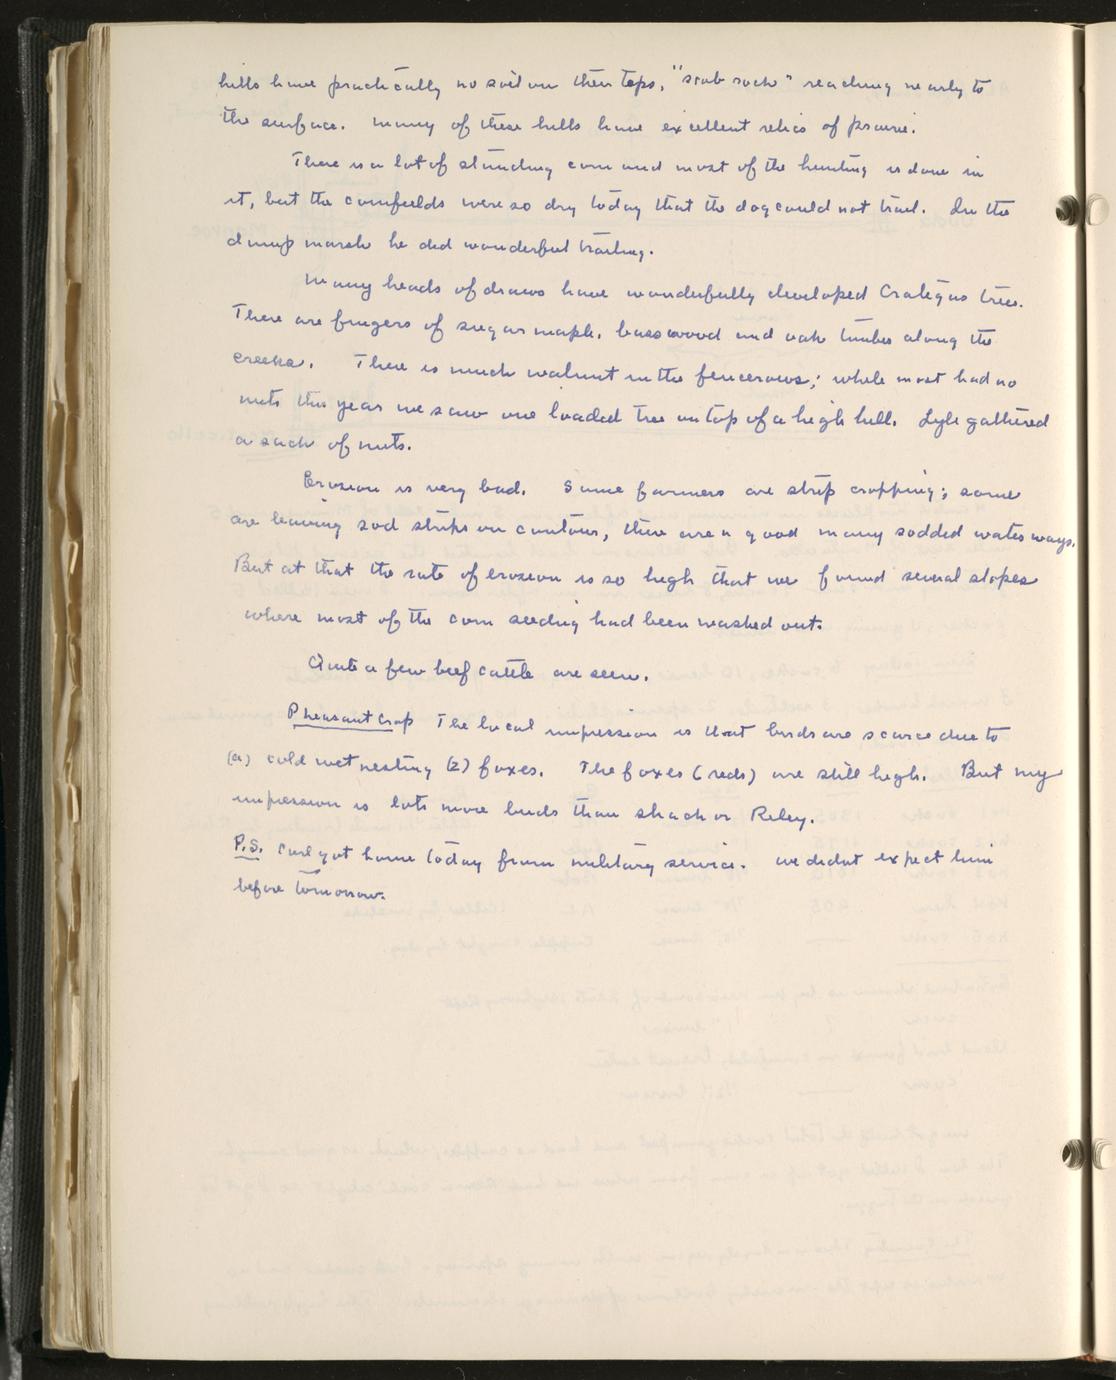 hills have practically no soil on their tops, "scab rock" reaching nearly to
the surface. Many of these hills have excellent relics of prairie.
There is a lot of standing corn and most of the hunting is done in
it, but the cornfields were so dry today that the dog could not trail. In the
damp marsh he did wonderful trailing.
Many heads of draws have wonderfully developed Crataegus trees.
There are fingers of sugar maple, basswood and oak timber along the
creeks. There is much walnut in the fencerows; while most had no
nuts this year we saw one loaded tree on top of a high hill. Lyle gathered
a sack of nuts.
Erosion is very bad. Some farmers are strip cropping; some
are leaving sod strips on contour, there are a good many sodded waterways.
But at that the rate of erosion is so high that we found several slopes
where most of the corn seeding had been washed out.
Quite a few beef cattle are seen.
Pheasant Crop The local impression is that birds are scarce due to
(a) cold wet nesting (2) foxes. The foxes (reds) are still high. But my
impression is lots more birds than shack or Riley.
P.S. Carl got home today from military service. We didnt expect him
before tomorrow.